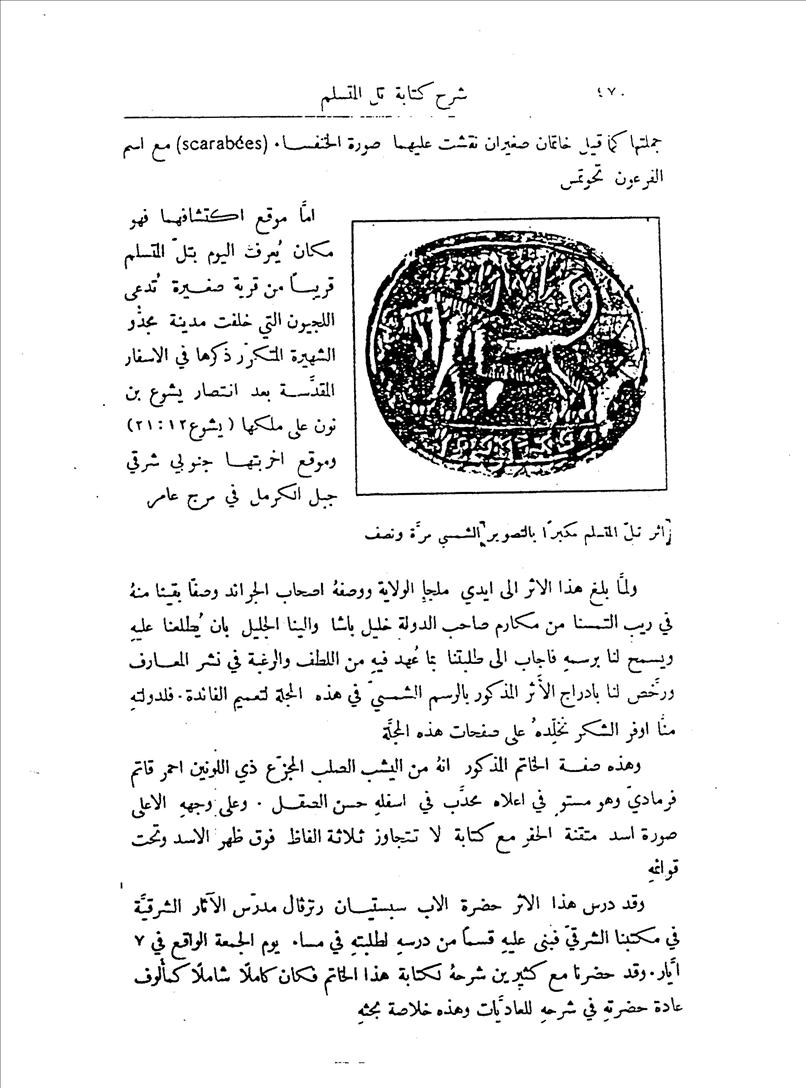 ٤٧٠
شرح كتابة تل المتسلم
جملتها كما قيل خاتمان صغيران نقشت عليهما صورة الخنفساء (scarabées) مع اسم
الفرعون تحوتمس
امَّا موقع اكتشافهما فهو
مكان يُعرف اليوم بتلّ المتسلم
قريبًا من قرية صغيرة تُدعى
اللجيون التي خلفت مدينة مجدّو
الشهيرة المتكرّر ذكرها في الاسفار
المقدَّسة بعد انتصار يشوع بن
نون على ملكها (يشوع ١٢: ٢١)
وموقع اخربتها جنوبي شرقي
جبل الكرمل في مرج عامر
تلّ المتسلم مكبرًا بالتصوير الشمسي مرَّة ونصف
ولمَّا بلغ هذا الاثر الى ايدي ملجإ الولاية ووصفهُ اصحاب الجرائد وصفًا بقينا منهُ
في ريب التمسنا من مكارم صاحب الدولة خليل باشا والينا الجليل بان يُطلعنا عليهِ
ويسمح لنا برسمهِ فاجاب الى طلبتنا بما عُهد فيهِ من اللطف والرغبة في نشر المعارف
ورخَّص لنا بادراج الأَثر المذكور بالرسم الشمسيّ في هذه المجلة لتعميم الفائدة. فلدولتهِ
منَّا اوفر الشكر نخلّدهُ على صفحات هذه المجلَّة
وهذه صفة الخاتم المذكور انهُ من اليشب الصلب المجزّع ذي اللونين احمر قاتم
فرماديّ وهو مستوٍ في اعلاه محدَّب في اسفلهِ حسن الصقل. وعلى وجههِ الاعلى
صورة اسد متقنة الحفر مع كتابة لا تتجاوز ثلاثة الفاظ فوق ظهر الاسد وتحت
قوائمهِ
وقد درس هذا الاثر حضرة الاب سبستيان رنزڤال مدرّس الآثار الشرقيَّة
في مكتبنا الشرقيّ فبنى عليهِ قسمًا من درسهِ لطلبتهِ في مساء يوم الجمعة الواقع في ٧
ايَّار. وقد حضرنا مع كثيرين شرحهُ لكتابة هذا الخاتم فكان كاملًا شاملًا كمألوف
عادة حضرتهِ في شرحهِ للعاديَّات وهذه خلاصة بحثهِ